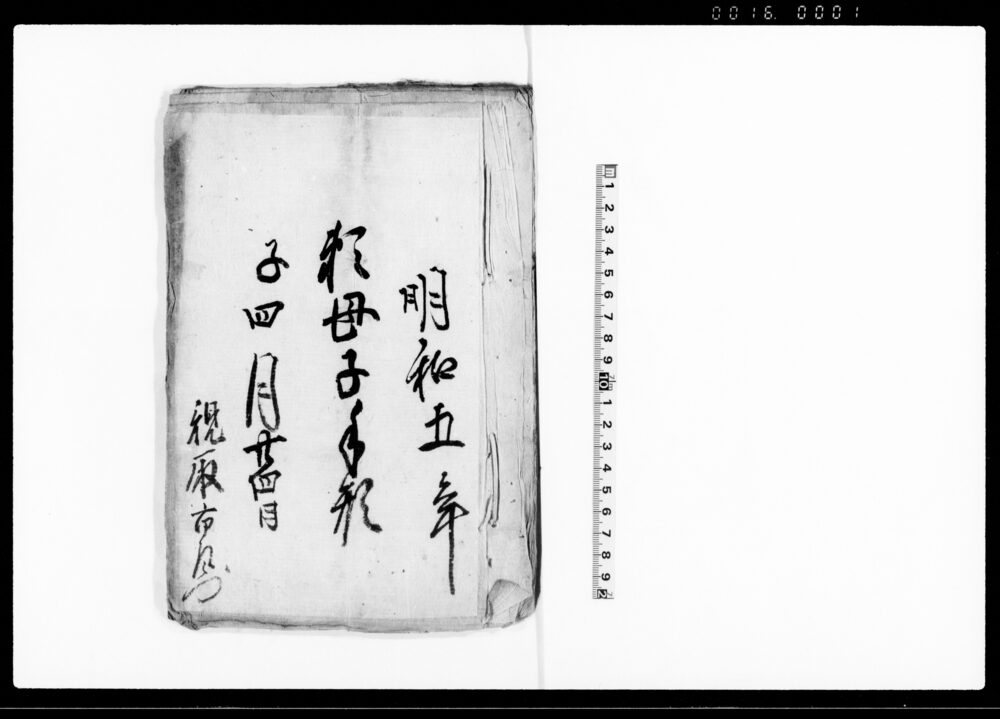 0016 0001
明和五年
頼母子手形
子四月廿四日
親
m 1 2 3 4 5 6 7 8 9 10 1 2 3 4 5 6 7 8 9 2